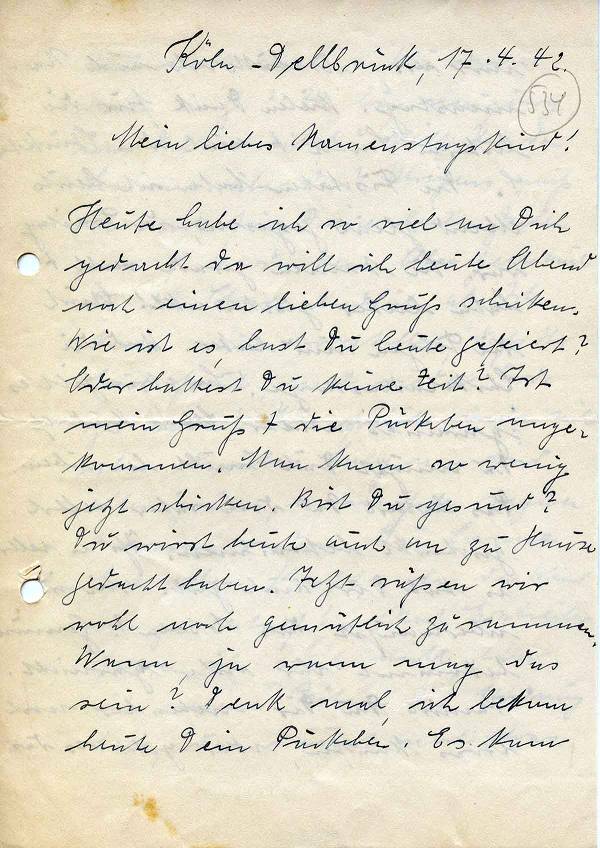 Köln-Dellbrück, 17.4.42.
534
Mein liebes Namenstagskind!
Heute habe ich so viel an Dich
gedacht da will ich heute Abend
noch einen lieben Gruß schicken.
Wie ist es, hast Du heute gefeiert?
Oder hattest Du keine Zeit? Ist
mein Gruß + die Päckchen ange-
kommen. Man kann so wenig
jetzt schicken. Bist Du gesund?
Du wirst heute auch an zu Hause
gedacht haben. Jetzt säßen wir
wohl noch gemütlich zusammen.
Wann, ja wann mag das
sein? Denk mal, ich bekam
heute Dein Päckchen. Es kam